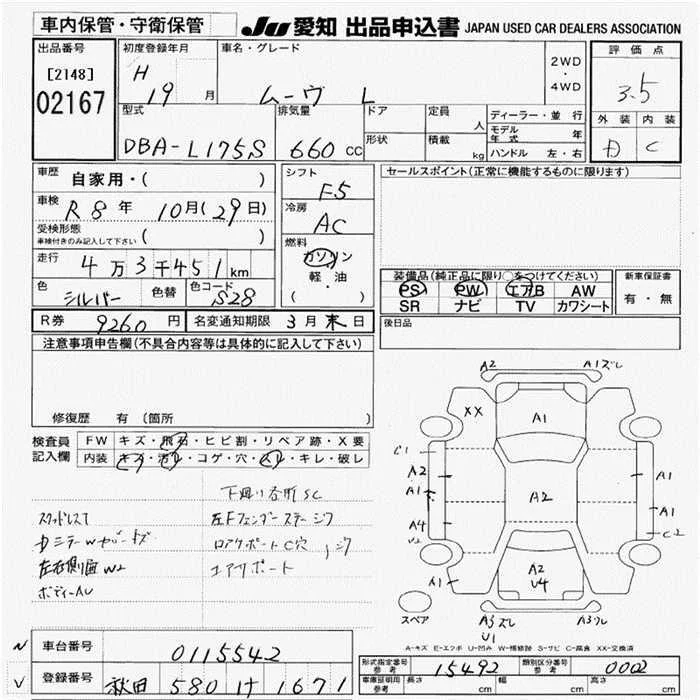 車内保管・守衛保管
JU 愛知 出品申込書 JAPAN USED CAR DEALERS ASSOCIATION
出品番号
[2148]
02167
初度登録年月
H
19 月
車名・グレード
ムーヴ L
2WD
・
4WD
評価点
3.5
外装 内装
D C
型式
DBA-L175S
排気量
660 cc
ドア
形状
定員
人
積載
kg
ディーラー・並行
モデル年式 年
ハンドル 左・右
車歴
自家用・( )
車検
R 8 年 10月(29日)
受検形態
車検付きのみ記入して下さい ( )
走行
4万3千451km
色
シルバー
色替
色コード
S28
シフト
F5
冷房
AC
燃料
ガソリン
軽・油
( )
セールスポイント(正常に機能するものに限ります)
装備品(純正品に限り○をつけてください)
PS PW エアB AW
SR ナビ TV カワシート
新車保証書
有・無
R券 9260円 名変通知期限 3月末日
後日品
注意事項申告欄(不具合内容等は具体的に記入して下さい)
修復歴 有(箇所 )
検査員
記入欄
FW キズ・飛石・ヒビ割・リペア跡・X要
内装 キズ・汚レ・コゲ・穴・スレ・キレ・破レ
下廻り各所SC
左Fフェンダーステージワ
ロアサポートC穴, ジワ
コアサポート
左右側面W2
ボディーAU
A2 A1ズレ
XX
A1
C1
A2
A1
A4
V2
A2
A1
A1
C2
A2
V4
A1
A3ズレ
U1
A3ズレ
スペア
A-キズ E-エクボ U-凹み W-補修跡 S-サビ C-腐食 XX-交換済
車台番号 0115542
登録番号 秋田 580 け 1671
形式指定番号
参考
15492
類別区分番号
参考
0002
車庫証明用
参考
長さ cm 幅 cm 高さ cm